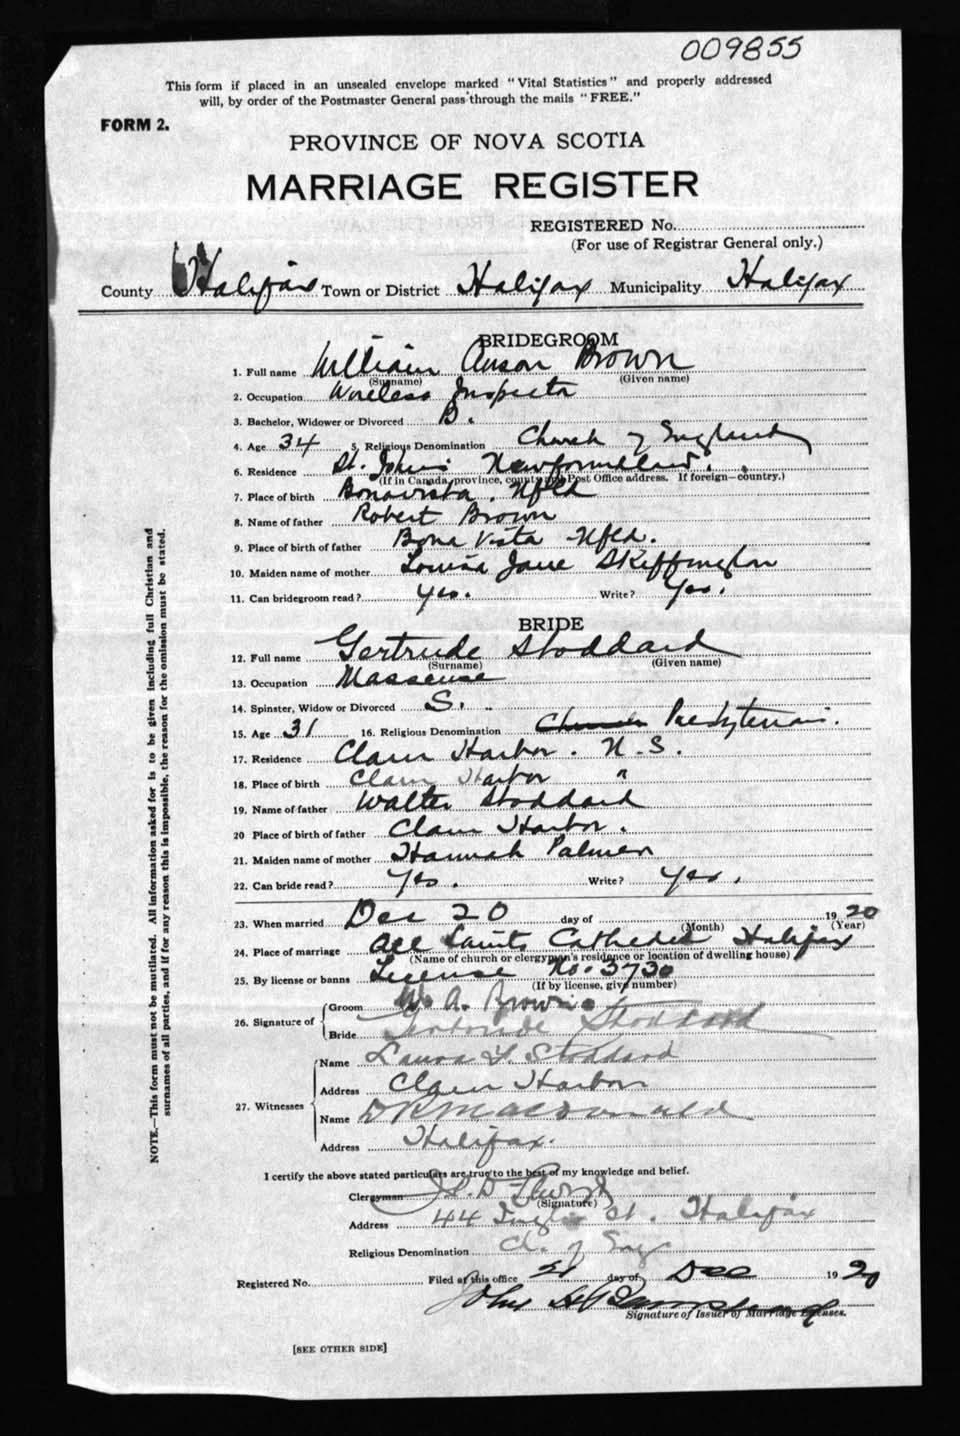 009855
This form if placed in an unsealed envelope marked "Vital Statistics" and properly addressed
will, by order of the Postmaster General pass through the mails "FREE."
FORM 2.
PROVINCE OF NOVA SCOTIA
MARRIAGE REGISTER
REGISTERED No.
(For use of Registrar General only.)
County Halifax Town or District Halifax Municipality Halifax
BRIDEGROOM
1. Full name William Anson Brown
(Surname) (Given name)
2. Occupation Wireless Inspector
3. Bachelor, Widower or Divorced B.
4. Age 34 5. Religious Denomination Church of England
6. Residence St. John's Newfoundland.
(If in Canada, province, county and Post Office address. If foreign—country.)
7. Place of birth Bonavista. Nfld
8. Name of father Robert Brown
9. Place of birth of father Bona Vista Nfld.
10. Maiden name of mother Louisa Jane Skiffington
11. Can bridegroom read? yes. Write? Yes.
BRIDE
12. Full name Gertrude Stoddard
(Surname) (Given name)
13. Occupation Masseuse
14. Spinster, Widow or Divorced S.
15. Age 31 16. Religious Denomination Church Presbyterian.
17. Residence Clam Harbor. N.S.
18. Place of birth Clam Harbor "
19. Name of father Walter Stoddard
20 Place of birth of father Clam Harbor.
21. Maiden name of mother Hannah Palmer
22. Can bride read? Yes. Write? Yes.
23. When married Dec 20 day of 19 20
(Month) (Year)
24. Place of marriage All Saints Cathedral Halifax
(Name of church or clergyman's residence or location of dwelling house)
25. By license or banns License No. 3730
(If by license, give number)
26. Signature of Groom Wm A. Brown
Bride Gertrude Stoddard
27. Witnesses Name Laura Stoddard
Address Clam Harbor
Name D R MacDonald
Address Halifax.
I certify the above stated particulars are true to the best of my knowledge and belief.
Clergyman
(Signature)
Address 44 St. Halifax
Religious Denomination Ch. of Eng
Registered No. Filed at this office 21 day of Dec 19 20
John
Signature of Issuer of Marriage Licenses.
[SEE OTHER SIDE]
NOTE.—This form must not be mutilated. All information asked for is to be given including full Christian and
surnames of all parties, and if for any reason this is impossible, the reason for the omission must be stated.